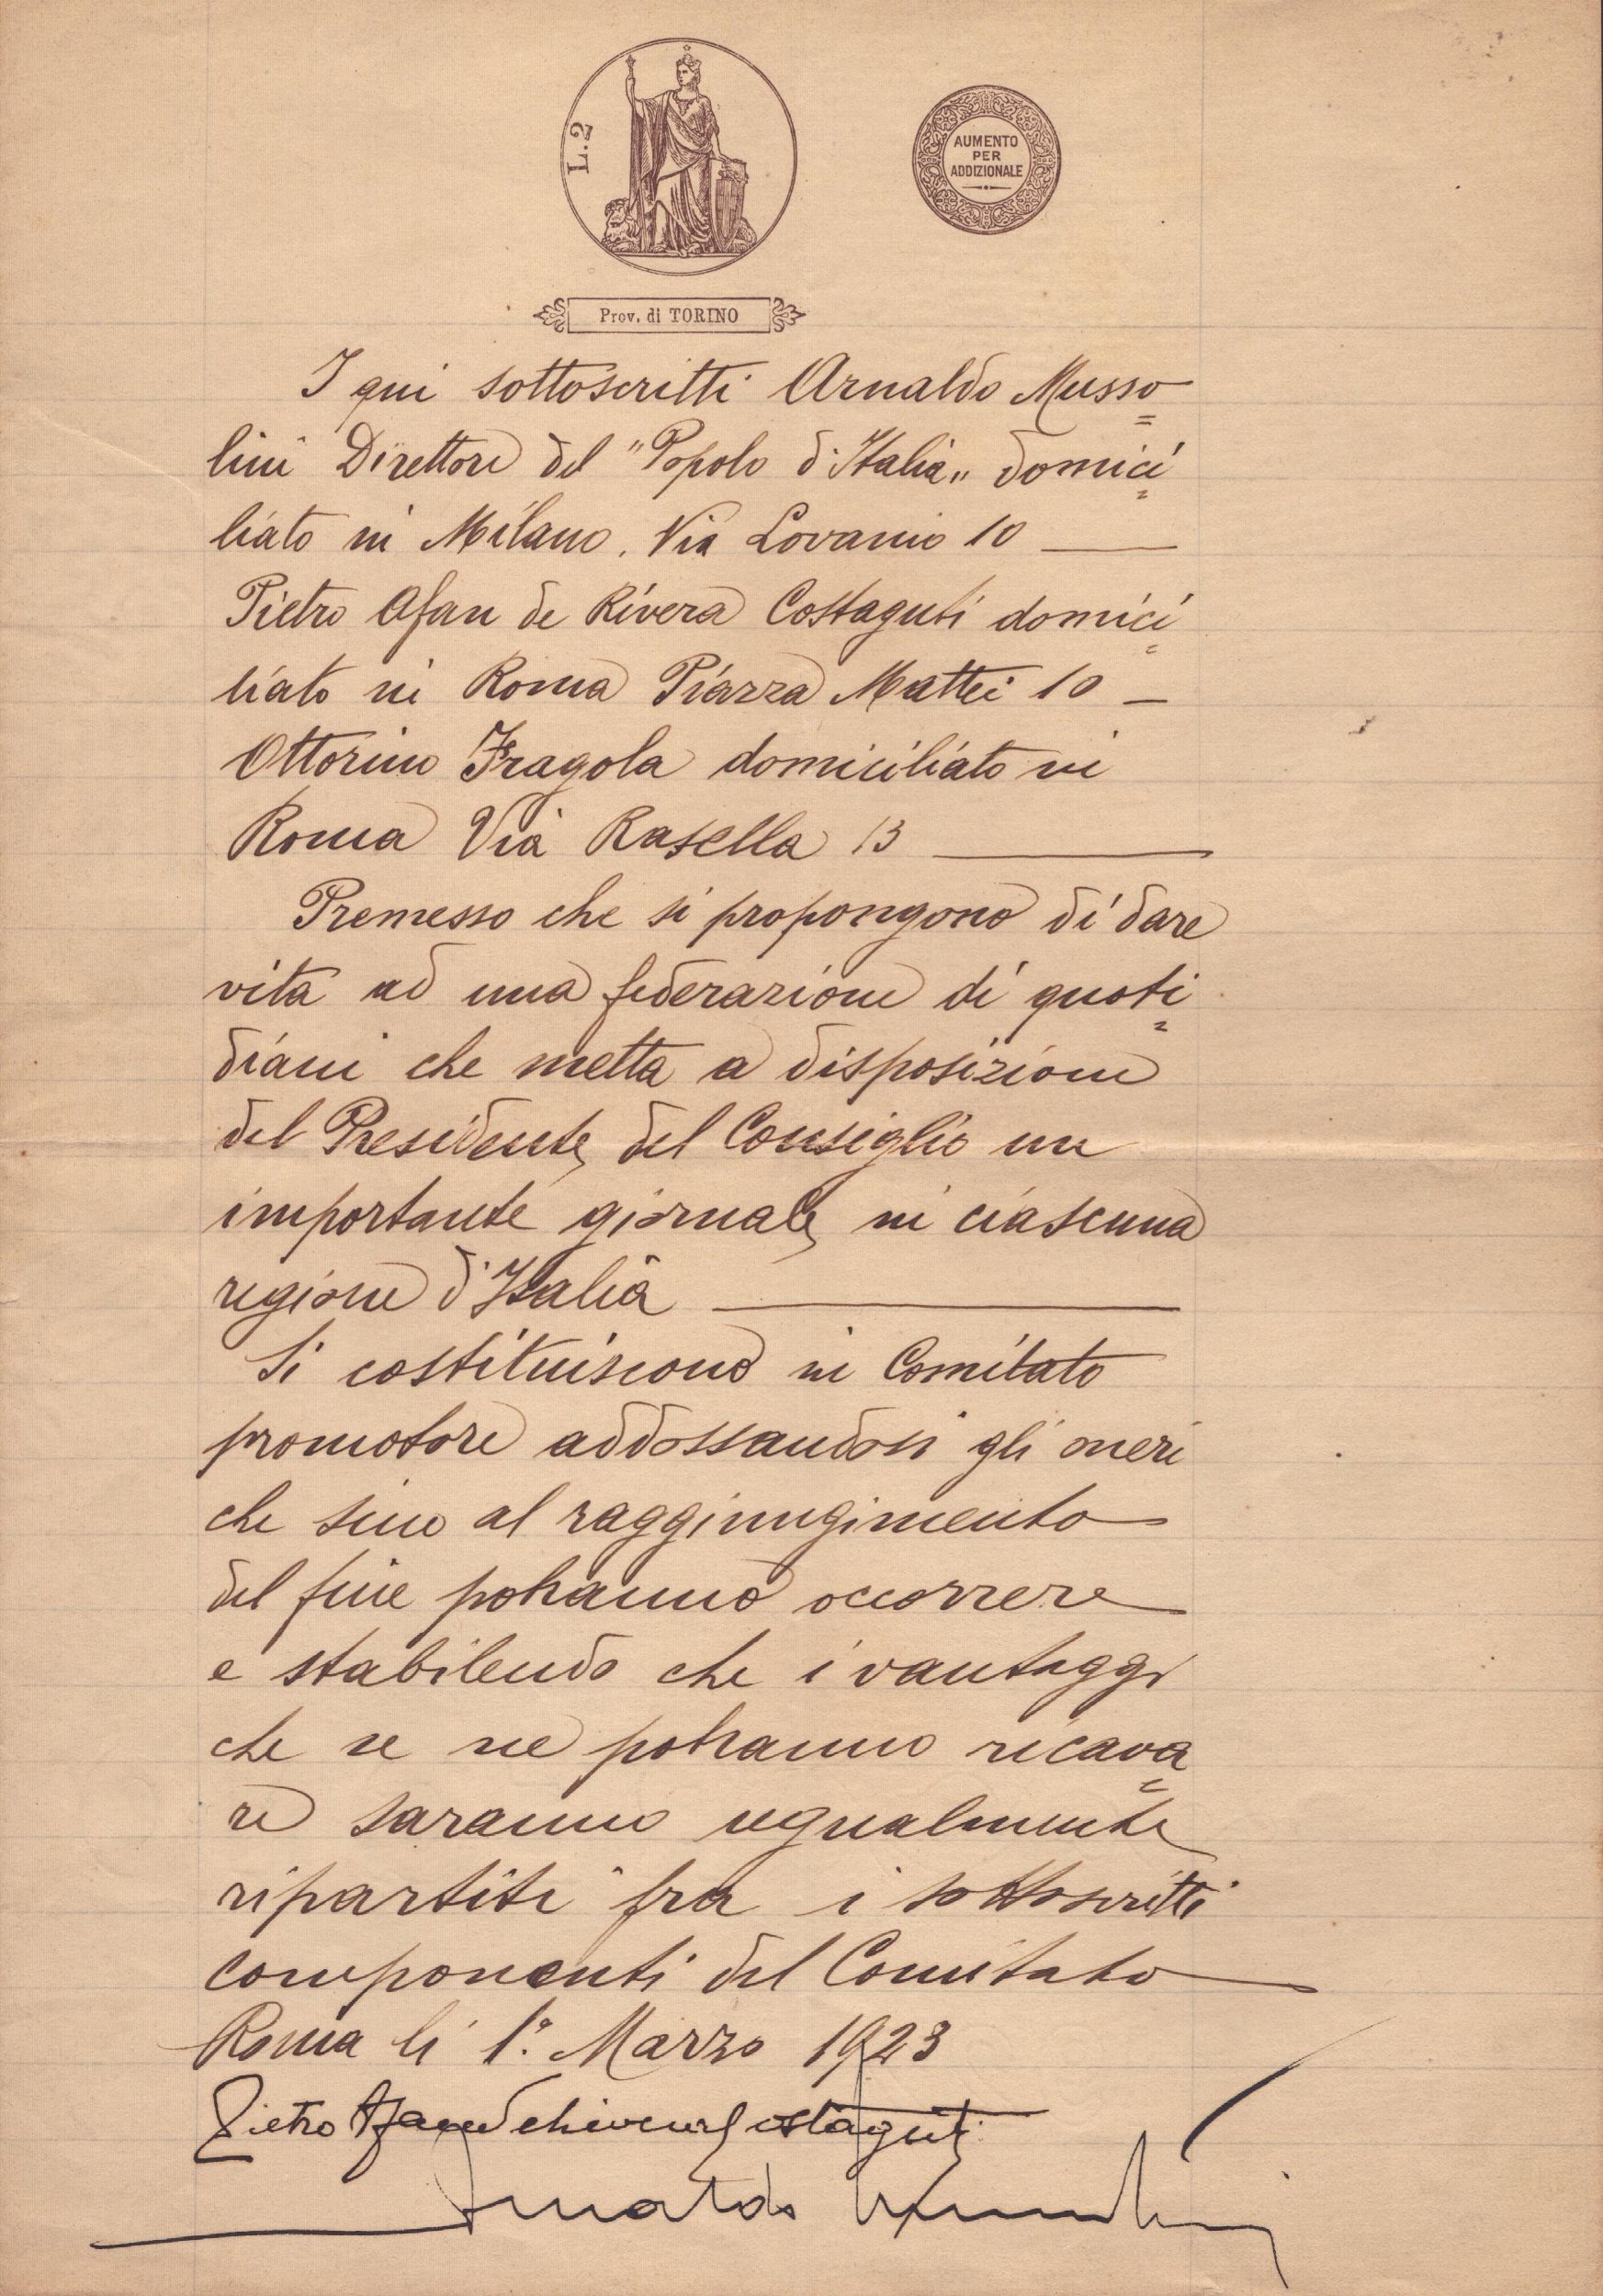 L. 2
AUMENTO
PER
ADDIZIONALE
Prov. di TORINO
I qui sottoscritti Arnaldo Musso=
lini Direttore del "Popolo d'Italia" domici=
liato in Milano. Via Lovanio 10 —
Pietro Afan de Rivera Costaguti domici=
liato in Roma Piazza Mattei 10 —
Ottorino Fragola domiciliato in
Roma Via Rasella 13 —
Premesso che si propongono di dare
vita ad una federazione di quoti=
diani che metta a disposizione
del Presidente del Consiglio un
importante giornale in ciascuna
regione d'Italia —
Si costituiscono in Comitato
promotore addossandosi gli oneri
che sino al raggiungimento
del fine potranno occorrere
e stabilendo che i vantaggi
che se ne potranno ricava=
re saranno ugualmente
ripartiti fra i sottoscritti
componenti del Comitato
Roma lì 1º. Marzo 1923
Pietro Afan de Rivera Costaguti
Arnaldo Mussolini